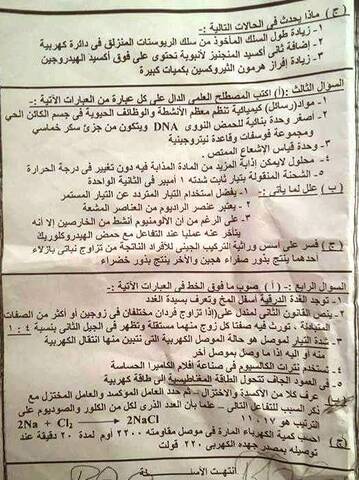 ( ج ) ماذا يحدث في الحالات التالية :-
١ - زيادة طول السلك المأخوذ من سلك الريوستات المنزلق في دائرة كهربية
٢ - إضافة ثاني أكسيد المنجنيز لأنبوبة تحتوى على فوق أكسيد الهيدروجين
٣ - زيادة إفراز هرمون الثيروكسين بكميات كبيرة
السؤال الثالث : ( أ ) اكتب المصطلح العلمى الدال على كل عبارة من العبارات الآتية :-
١ - مواد (رسائل) كيميائية تنظم معظم الأنشطة والوظائف الحيوية فى جسم الكائن الحي
٢ - أصغر وحدة بنائية للحمض النووى DNA ويتكون من جزئ سكر خماسي
ومجموعة فوسفات وقاعدة نيتروجينية
٣ - وحدة قياس الإشعاع الممتص .
٤ - محلول لايمكن إذابة المزيد من المادة المذابة فيه دون تغيير فى درجة الحرارة
٥ - الشحنة المنقولة بتيار ثابت شدته ١ أمبير فى الثانية الواحدة
( ب ) علل لما يأتى :- ١ - يفضل استخدام التيار المتردد عن التيار المستمر
٢ - يعتبر عنصر الراديوم من العناصر المشعة
٣ - على الرغم من أن الألومنيوم أنشط من الخارصين إلا أنه
يتأخر عنه عمليا عند التفاعل مع حمض الهيدروكلوريك
( ج ) فسر على أسس وراثية التركيب الجينى للأفراد الناتجة من تزاوج نباتى بازلاء
أحدهما ينتج بذور صفراء هجين والآخر ينتج بذور خضراء
السؤال الرابع :- ( أ ) صوب ما فوق الخط فى العبارات الآتية :-
١ - توجد الغدة الدرقية أسفل المخ وتعرف بسيدة الغدد
٢ - ينص القانون الثانى لمندل على(إذا تزاوج فردان مختلفان فى زوجين أو أكثر من الصفات
المتبادلة ، تورث فيه صفتا كل زوج منهما مستقلة وتظهر فى الجيل الثانى بنسبة ٤ : ١
٣ - شدة التيار لموصل هو حالة الموصل الكهربية التى تبين منها انتقال الكهربية
منه أو اليه إذا ما وصل بموصل آخر
٤ - تستخدم نترات الكالسيوم فى صناعة أفلام الكاميرا الحساسة
٥ - فى العمود الجاف تتحول الطاقة المغناطيسية إلى طاقة كهربية
( ب ) عرف كلا من الأكسدة والاختزال .. ثم حدد العامل المؤكسد والعامل المختزل مع
ذكر السبب للتفاعل التالى .. علما بأن العدد الذرى لكل من الكلور والصوديوم على
الترتيب هو ١٧ ، ١١
2Na + Cl2 → 2NaCl
( ج ) احسب كمية الكهرباء المارة فى موصل مقاومته ٢٢٠٠ أوم لمدة ٢٠ دقيقة عند
توصيله بمصدر جهده الكهربى ٢٢٠ فولت
انتهت الأسئلة